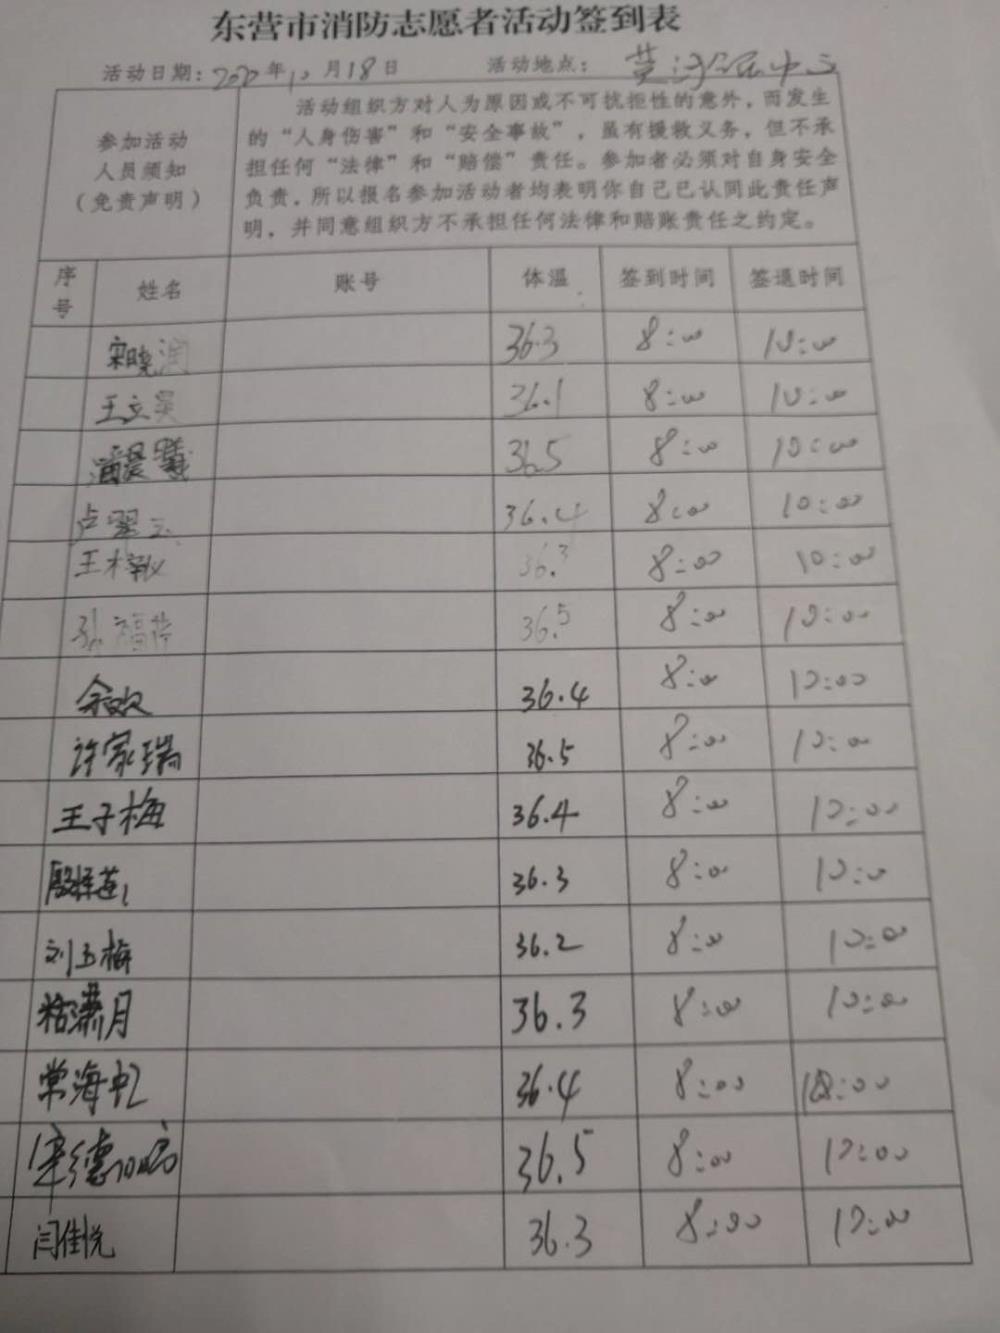 东营市消防志愿者活动签到表
活动日期：2020年10月18日 活动地点：黄河 中
参加活动
人员须知
（免责声明）
活动组织方对人为原因或不可抗拒性的意外，而发生
的“人身伤害”和“安全事故”，虽有援救义务，但不承
担任何“法律”和“赔偿”责任。参加者必须对自身安全
负责，所以报名参加活动者均表明你自己已认同此责任声
明，并同意组织方不承担任何法律和赔账责任之约定。
序号 姓名 账号 体温 签到时间 签退时间
宋晓润 36.3 8:00 10:00
王立昊 36.1 8:00 10:00
潘晨曦 36.5 8:00 10:00
卢翠玉 36.4 8:00 10:00
王梓敬 36.3 8:00 10:00
孙福 36.5 8:00 10:00
余欢 36.4 8:00 10:00
许家瑞 36.5 8:00 10:00
王子梅 36.4 8:00 10:00
殷 莲 36.3 8:00 10:00
刘玉梅 36.2 8:00 10:00
潇月 36.3 8:00 10:00
常海虹 36.4 8:00 10:00
德 36.5 8:00 10:00
闫佳悦 36.3 8:00 10:00